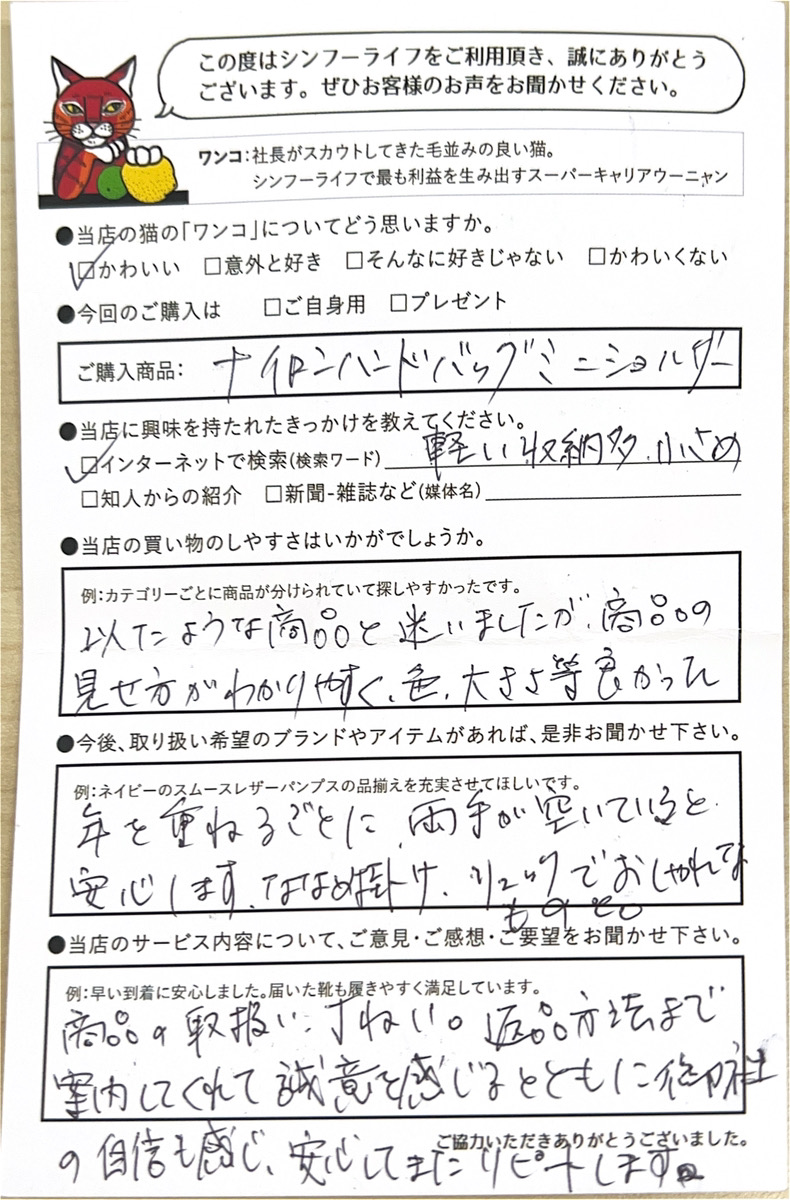 この度はシンフーライフをご利用頂き、誠にありがとう
ございます。ぜひお客様のお声をお聞かせください。
ワンコ:社長がスカウトしてきた毛並みの良い猫。
シンフーライフで最も利益を生み出すスーパーキャリアウーニャン
●当店の猫の「ワンコ」についてどう思いますか。
□かわいい □意外と好き □そんなに好きじゃない □かわいくない
●今回のご購入は □ご自身用 □プレゼント
ご購入商品: ナイロンハンドバッグミニショルダー
●当店に興味を持たれたきっかけを教えてください。
□インターネットで検索(検索ワード) 軽い収納多.小さめ
□知人からの紹介 □新聞-雑誌など(媒体名)
●当店の買い物のしやすさはいかがでしょうか。
例:カテゴリーごとに商品が分けられていて探しやすかったです。
以たような商品と迷いましたが、商品の
見せ方がわかりやすく、色、大きさ等良かった
●今後、取り扱い希望のブランドやアイテムがあれば、是非お聞かせ下さい。
例:ネイビーのスムースレザーパンプスの品揃えを充実させてほしいです。
年を重ねるごとに、両手が空いていると
安心します。ななめ掛け、リュックでおしゃれな
ものを
●当店のサービス内容について、ご意見・ご感想・ご要望をお聞かせ下さい。
例:早い到着に安心しました。届いた靴も履きやすく満足しています。
商品の取扱い、ていねい。返品方法まで
案内してくれて誠意を感じるとともに御社
ご協力いただきありがとうございました。
の自信も感じ、安心してまたリピートします。